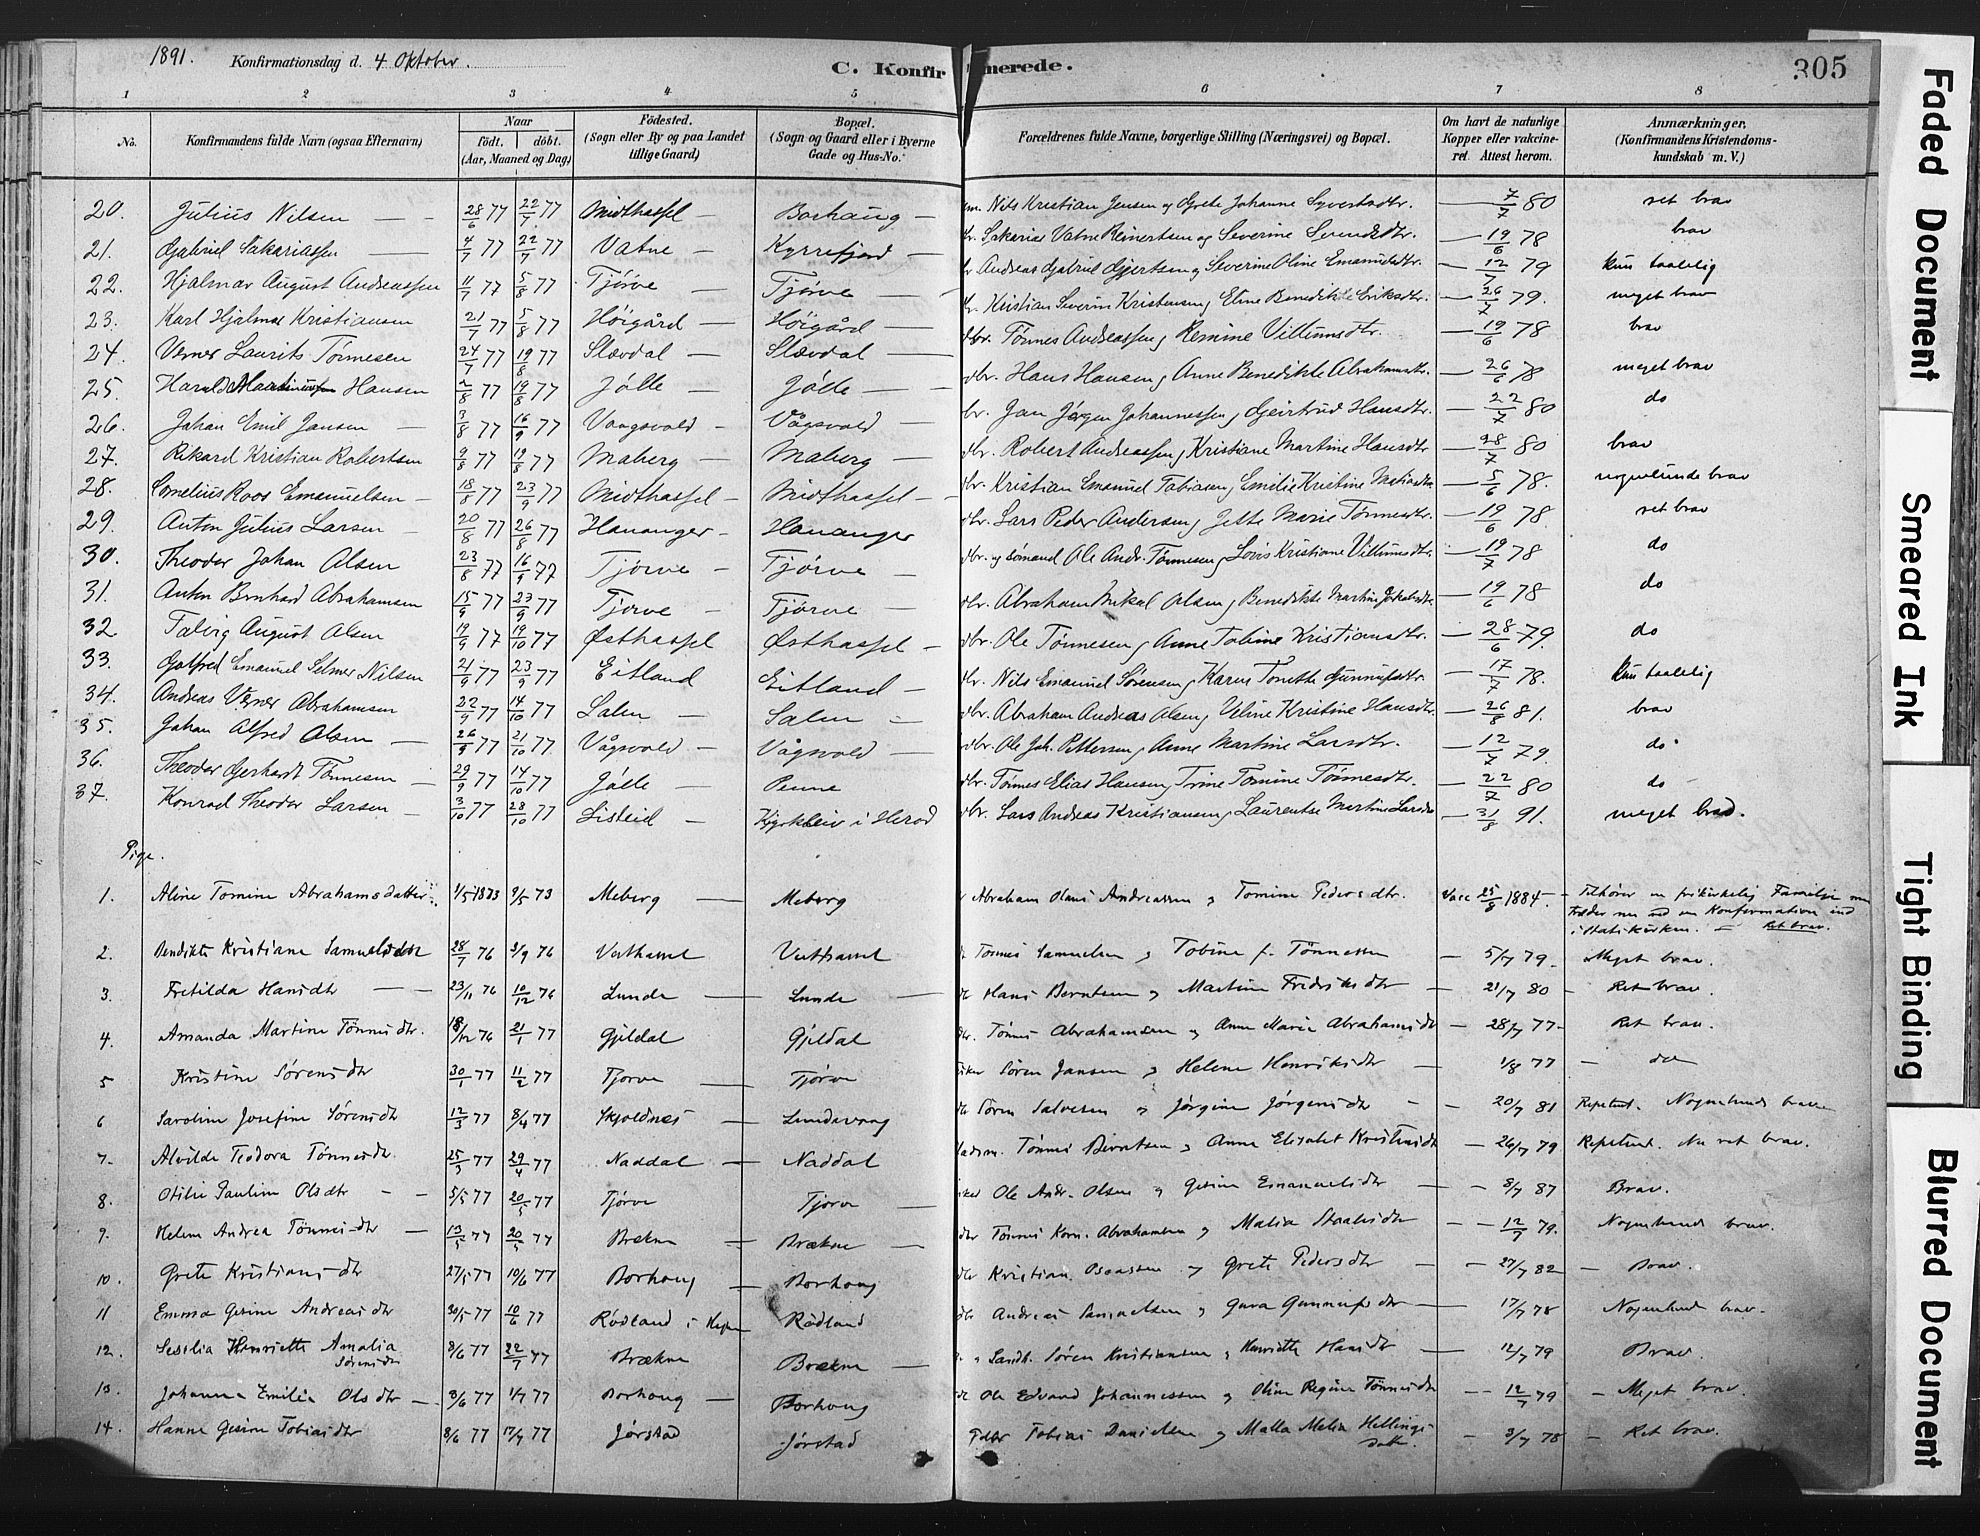 1891. Konfirmationsdag d. 4 Oktober.
C. Konfirmerede.
305
1 2 3 4 5 6 7 8
No.
Konfirmandens fulde Navn (ogsaa Efternavn)
Naar
født. døbt.
(Aar, Maaned og Dag)
Fødested.
(Sogn eller By og paa Landet
tillige Gaard)
Bopæl.
(Sogn og Gaard eller i Byerne
Gade og Hus-No.
Forældrenes fulde Navne, borgerlige Stilling (Næringsvei) og Bopæl.
Om havt de naturlige
Kopper eller vakcine-
ret. Attest herom.
Anmærkninger,
(Konfirmandens Kristendoms-
kundskab m. V.)
20. Julius Nilsen — 28/6 77 22/7 77 Midthassel — Borhaug — Nils Kristian Jensen og Grete Johanne Syvertsdtr. — 7/7 80 ret brav
21. Gabriel Sakariassen — 4/7 77 22/7 77 Vatne — Kyrrefjord — Sakarias Vatne Reinertsen og Severine Svendsdtr. — 19/6 78 brav
22. Hjalmar August Andreassen 11/7 77 5/8 77 Tjörve — Tjörve — Andreas Gabriel Gjertsen og Severine Oline Emanuelsdtr. — 12/7 79 kun taalelig
23. Karl Hjalmar Kristiansen 21/7 77 5/8 77 Höigård — Höigård — Kristian Severin Kristensen og Eline Benedikte Eriksdtr. — 26/7 79. meget brav
24. Verner Laurits Tönnesen 24/7 77 19/8 77 Slævdal — Slævdal — Tönnes Andreassen og Remine Villumsdtr. — 19/6 78 brav
25. Harald Hansen 2/8 77 19/8 77 Jölle — Jölle — Hans Hansen og Anne Benedikte Abrahamsdtr. — 26/6 78 meget brav
26. Johan Emil Jansen — 3/8 77 16/9 77 Vaagsvold — Vågsvold — Jan Jörgen Johannessen og Geirtrud Hansdtr. — 22/7 80 do
27. Rikard Kristian Robertsen 9/8 77 19/8 77 Maberg — Maberg — Robert Andreassen og Kristiane Martine Hansdtr. — 28/7 80 brav
28. Cornelius Roos Emanuelsen — 18/8 77 23/9 77 Midthassel — Midthassel — Kristian Emanuel Tobiasen og Emilie Kristine — 5/6 78. nogenlunde brav
29. Anton Julius Larsen — 20/8 77 26/8 77 Hananger — Hananger Lars Peder Andersen og Jette Marie Tönnesdtr. — 19/6 78. ret brav
30. Theodor Johan Olsen 23/8 77 16/9 77 Tjörve — Tjörve — og sömand Ole Andr. Tönnesen og Lovis Kristiane Villumsdtr. — 19/7 78 do
31. Anton Bernhard Abrahamsen 15/9 77 23/9 77 Tjörve — Tjörve — Abraham Mikal Olsen og Benedikte Martine Jakobsdtr. — 19/6 78 do
32 Talvig August Olsen 19/9 77 19/10 77 Østhassel Østhassel — Ole Tönnesen og Anne Tobine Kristiansdtr. — 28/6 79. do
33. Gotfred Emanuel Selmer Nilsen 21/9 77 23/9 77 Eitland Eitland — Nils Emanuel Sörensen og Karen Tonette Gunnufsdtr. — 17/7 78. kun taalelig
34. Andreas Verner Abrahamsen 22/9 77 14/10 77 Salen — Salen — Abraham Andreas Olsen og Eline Kristine Hansdtr. — 26/8 81. brav
35. Johan Alfred Olsen — 26/9 77 21/10 77 Vågsvold — Vågsvold — Ole Joh. Pettersen og Anne Martine Larsdtr. — 12/7 79. do
36. Theodor Gerhardt Tönnesen — 29/9 77 14/10 77 Jölle — Penne Tönnes Elias Hansen og Trine Tomine Tönnesdtr. — 22/7 80 do
37. Konrad Theodor Larsen — 3/10 77 28/10 77 Listeid — Kjörkleiv i Herod Lars Andreas Kristiansen og Laurentse Martine Larsdtr — 31/8 91. meget brav.
Pige.
1. Aline Tomine Abrahamsdatter 1/5 1873 9/5 73 Meberg — Meberg Abraham Olaus Andreassen og Tomine Pedersdtr. Vacc 25/8 1884 — Tilhører en frikirkelig Familje men
træder nu ved sin Konfirmation ind
i Statskirken. — Ret brav.
2. Bendikte Kristiane Samuelsdatr 28/7 76 3/9 76 Vesthassel Vesthassel Tönnes Samuelsen og Tobine f. Tönnessen — 5/7 79. Meget brav.
3. Fretilda Hansdtr — 23/11 76 10/12 76 Lunde — Lunde — Hans Berntsen og Martine Fredriksdtr — 21/7 80 — Ret brav.
4. Amanda Martine Tönnesdtr. 18/12 76 21/1 77 Gjeldal Gjeldal Tönnes Abrahamsen og Anne Marie Abrahamsdtr — 28/7 77 — Ret brav.
5 Kristine Sörensdtr 30/1 77 11/2 77 Tjorve — Tjörve Sören Jansen og Helene Henriksdtr — 1/8 77 — do
6 Saroline Josefine Sörensdtr 12/3 77 8/4 77 Skjoldnes — Lundevaag Sören Salvesen og Jörgine Jörgensdtr — 20/7 81 Repetent. Nogenlunde brav
7. Alvilde Teodora Tönnesdtr. 25/3 77 29/4 77 Naddal — Naddal Tönnes Berntsen og Anne Elisabet Kristensdtr — 26/7 79 Repetent. Nu ret brav.
8. Otilie Pauline Olsdtr — 5/5 77 20/5 77 Tjörve Tjorve — Ole Andr. Olsen og Gesine Emanuelsdtr — 8/7 87 Brav.
9. Helene Andrea Tönnesdtr — 13/5 77 20/5 77 Brækne — Brækne — Tönnes Korn. Abrahamsen og Malia Staalesdtr — 12/7 79. Nogenlunde brav.
10. Grete Kristiansdtr 27/5 77 10/6 77 Borhoug — Borhoug Kristian Isaassen og Grete Pedersdtr — 27/7 82 — Brav.
11 Emma Gesine Andreasdtr 30/5 77 10/6 77 Rödland i Rödland Andreas Samuelsen og Gura Gunnufsdtr — 17/7 78 Nogenlunde brav.
12. Sesilia Henriette Amalia
Sörensdtr 3/6 77 22/7 77 Brækne Brækne — Sandh. Sören Kristiansen og Henriette Hansdtr — 12/7 79 Brav.
13. Johanna Emilie Olsdtr — 3/6 77 1/7 77 Borhoug — Borhoug Ole Edvard Johannessen og Oline Regine Tönnesdtr — 12/7 79 — Meget brav.
14. Hanne Gesine Tobiasdtr 8/6 77 17/7 77 Jørstad Jørstad Tobias Danielsen og Malla Malia Hellings-
datter — 3/7 78 — Ret brav.
Faded Document
Smeared Ink
Tight Binding
Blurred Document